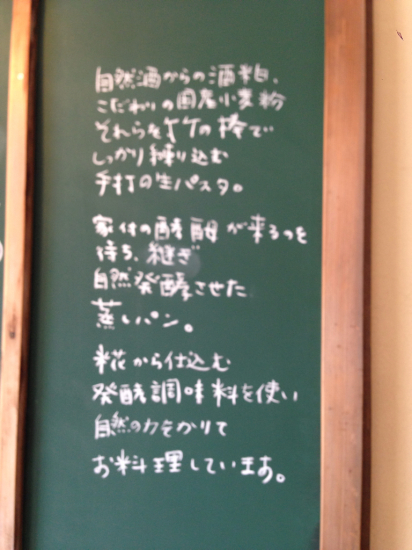 自然酒からの酒粕、
こだわりの国産小麦粉
それらを竹の棒で
しっかり練り込む
手打の生パスタ。
家付の酵母が来るのを
待ち、継ぎ
自然発酵させた
蒸しパン。
糀から仕込む
発酵調味料を使い
自然の力をかりて
お料理しています。